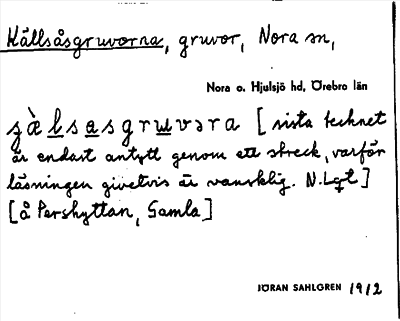 Källsåsgruvorna, gruvor, Nora sn,
Nora o. Hjulsjö hd, Örebro län
[sista tecknet
är endast antytt genom ett streck, varför
läsningen givetvis är vansklig. N. Lqt]
[å Pershyttan, Gamla]
JÖRAN SAHLGREN 1912